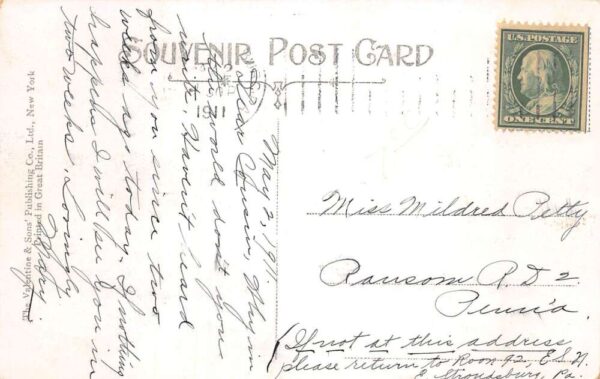 SOUVENIR POST CARD
U.S. POSTAGE
ONE CENT
1911
May 2, 1911.
Dear Cousin, Why in
the world don't you
write. Haven't heard
from you since two
weeks ago today. If nothing
happens I will see you in
two weeks. Lovingly
Mary.
Miss Mildred Petty
Ransom R.D 2
Penn'a.
If not at this address
please return to Room 92, E.S.N.
E. Stroudsburg, Pa.
The Valentine & Sons' Publishing Co., Ltd., New York
Printed in Great Britain